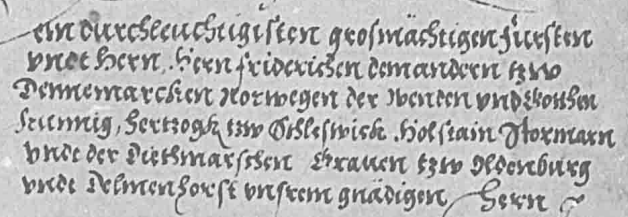 ein durchleuchtigisten grosmächtigen fursten
vndt Hern, Hern friderichen dem andern tzw
Dennemarcken Norwegen der Wenden vnd Gotthen
kunnig, Hertzogk tzw Schleswick Holstain Stormarn
vnde der Diethmarschen Grauen tzw Oldenburg
vnde Delmenhorst vnsrem gnädigen Hern